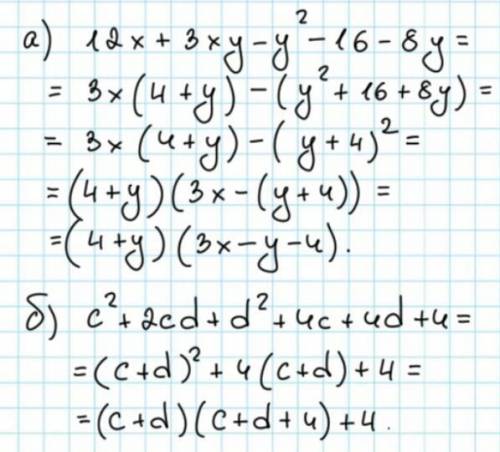 а) 12x + 3xy - y² - 16 - 8y =
= 3x(4 + y) - (y² + 16 + 8y) =
= 3x(4 + y) - (y + 4)² =
= (4 + y)(3x - (y + 4)) =
= (4 + y)(3x - y - 4).
б) c² + 2cd + d² + 4c + 4d + 4 =
= (c + d)² + 4(c + d) + 4 =
= (c + d)(c + d + 4) + 4.